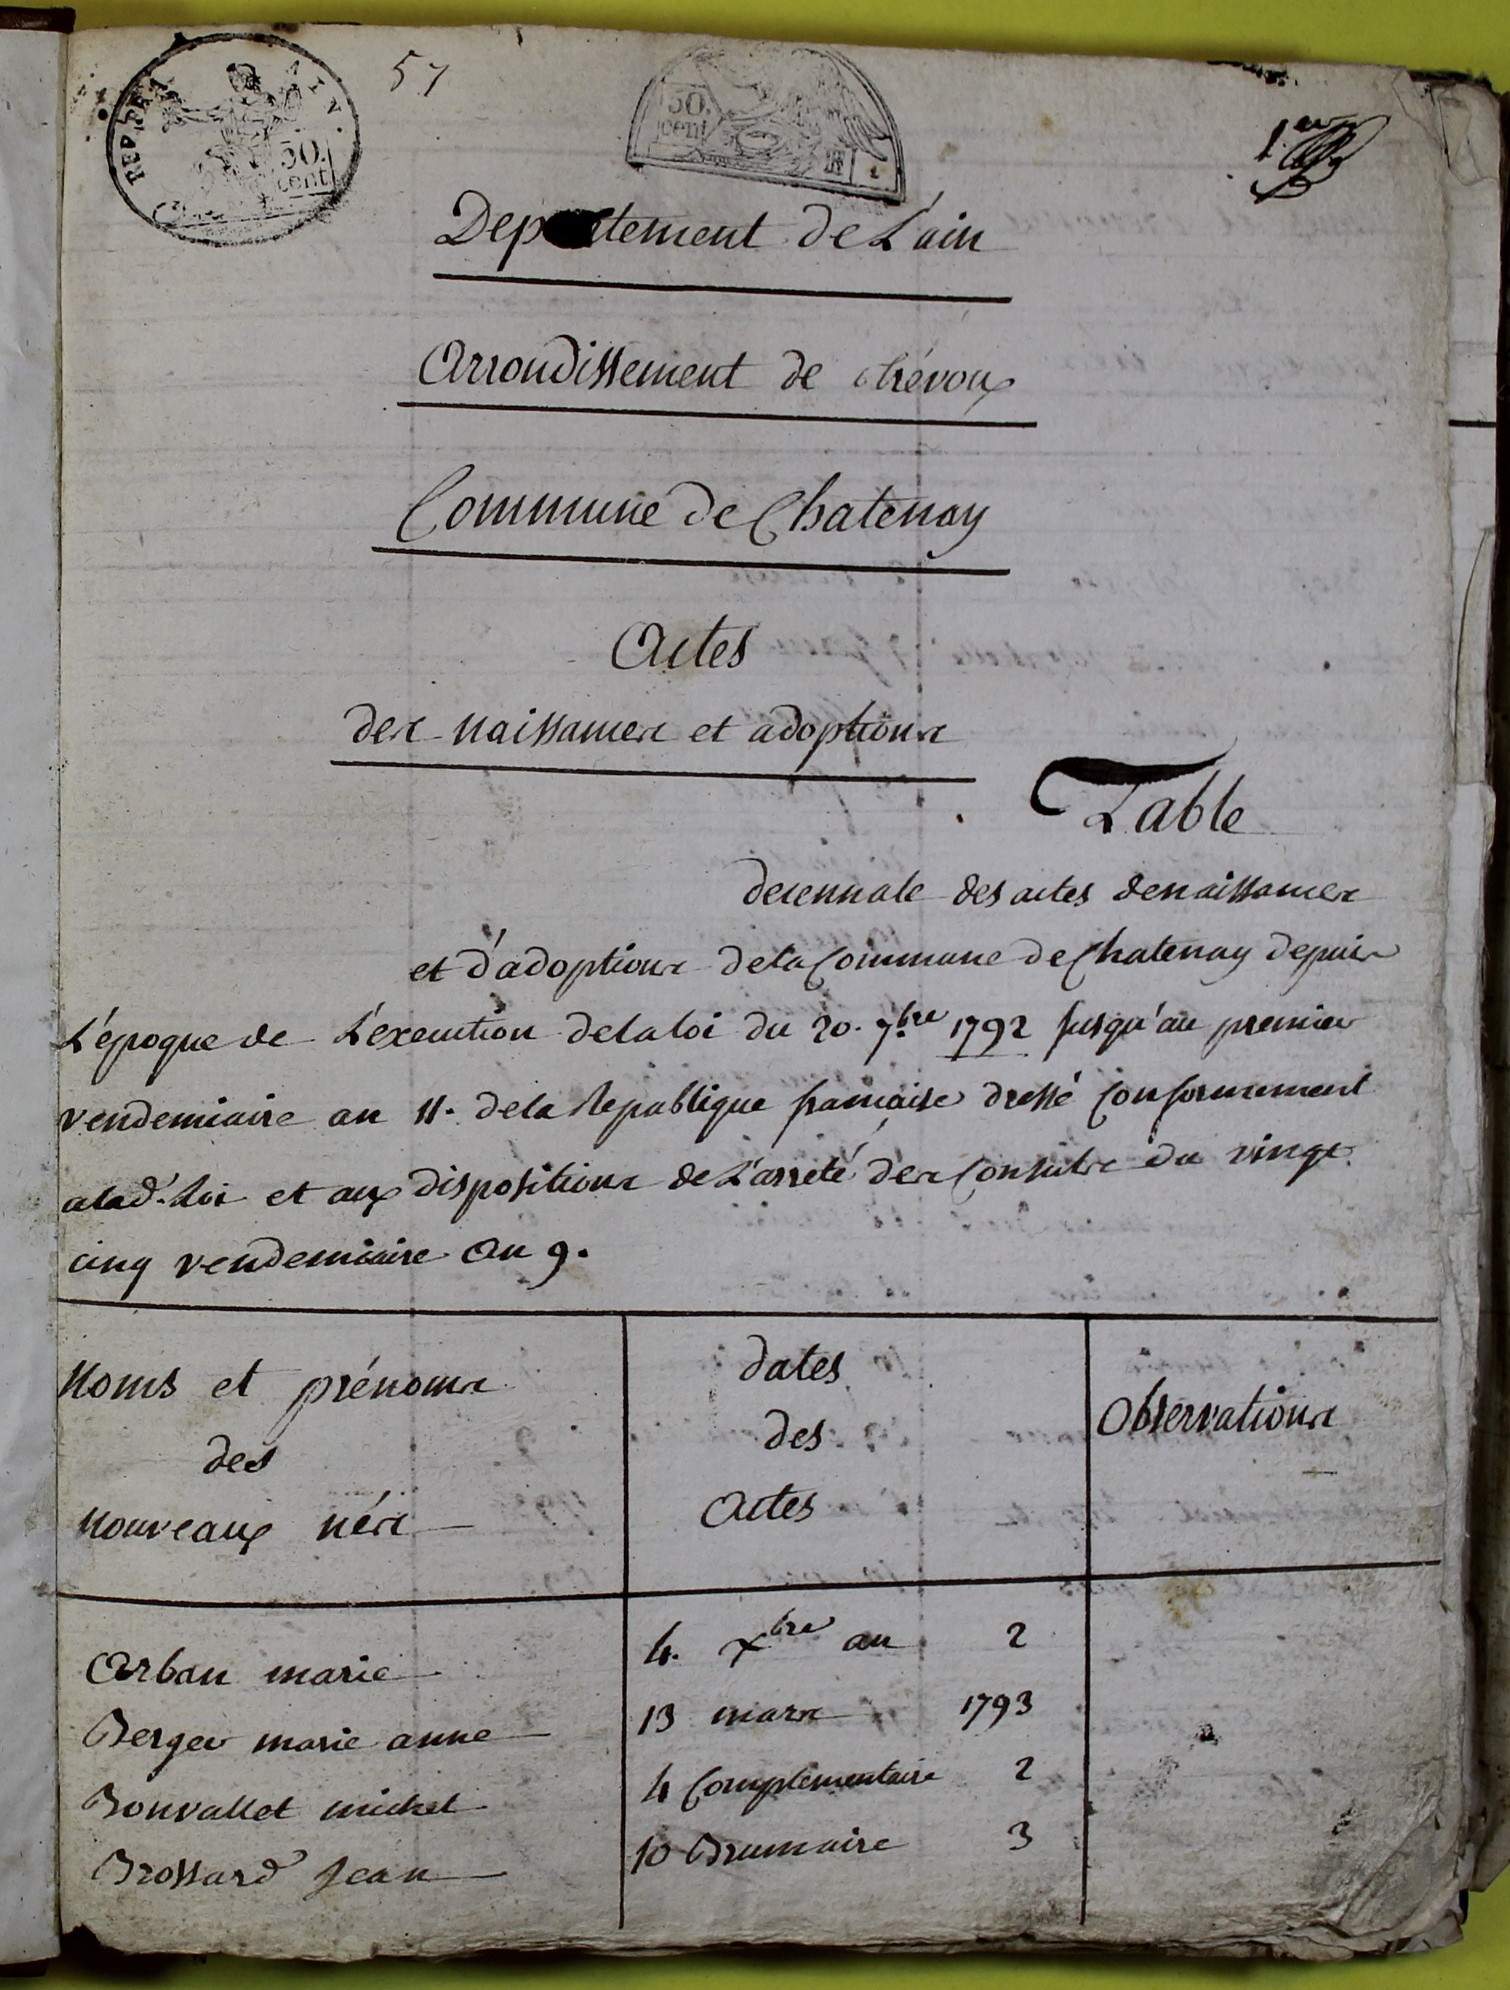 57
REP. FRA.
AIN.
50.
cent
50.
cent
RF
1.er
Departement de L'ain
Arrondissement de trévoux
Commune de Chatenay
Actes
des naissances et adoptions
Table
decennale des actes de naissances
et d'adoptions de la Commune de Chatenay depuis
L'époque de L'execution de la loi du 20. 7.bre 1792 jusqu'au premier
vendemiaire an 11. de la Republique française dressé Conformement
a lad. Loi et aux dispositions de L'arreté des Consuls du vingt
cinq vendemiaire an 9.
Noms et prénoms
des
nouveaux nés
dates
des
actes
Observations
Arban marie 4. Xbre an 2
Berger marie anne 13 mars 1793
Bonvallet michel 4 Complementaire 2
Brossard Jean 10 Brumaire 3